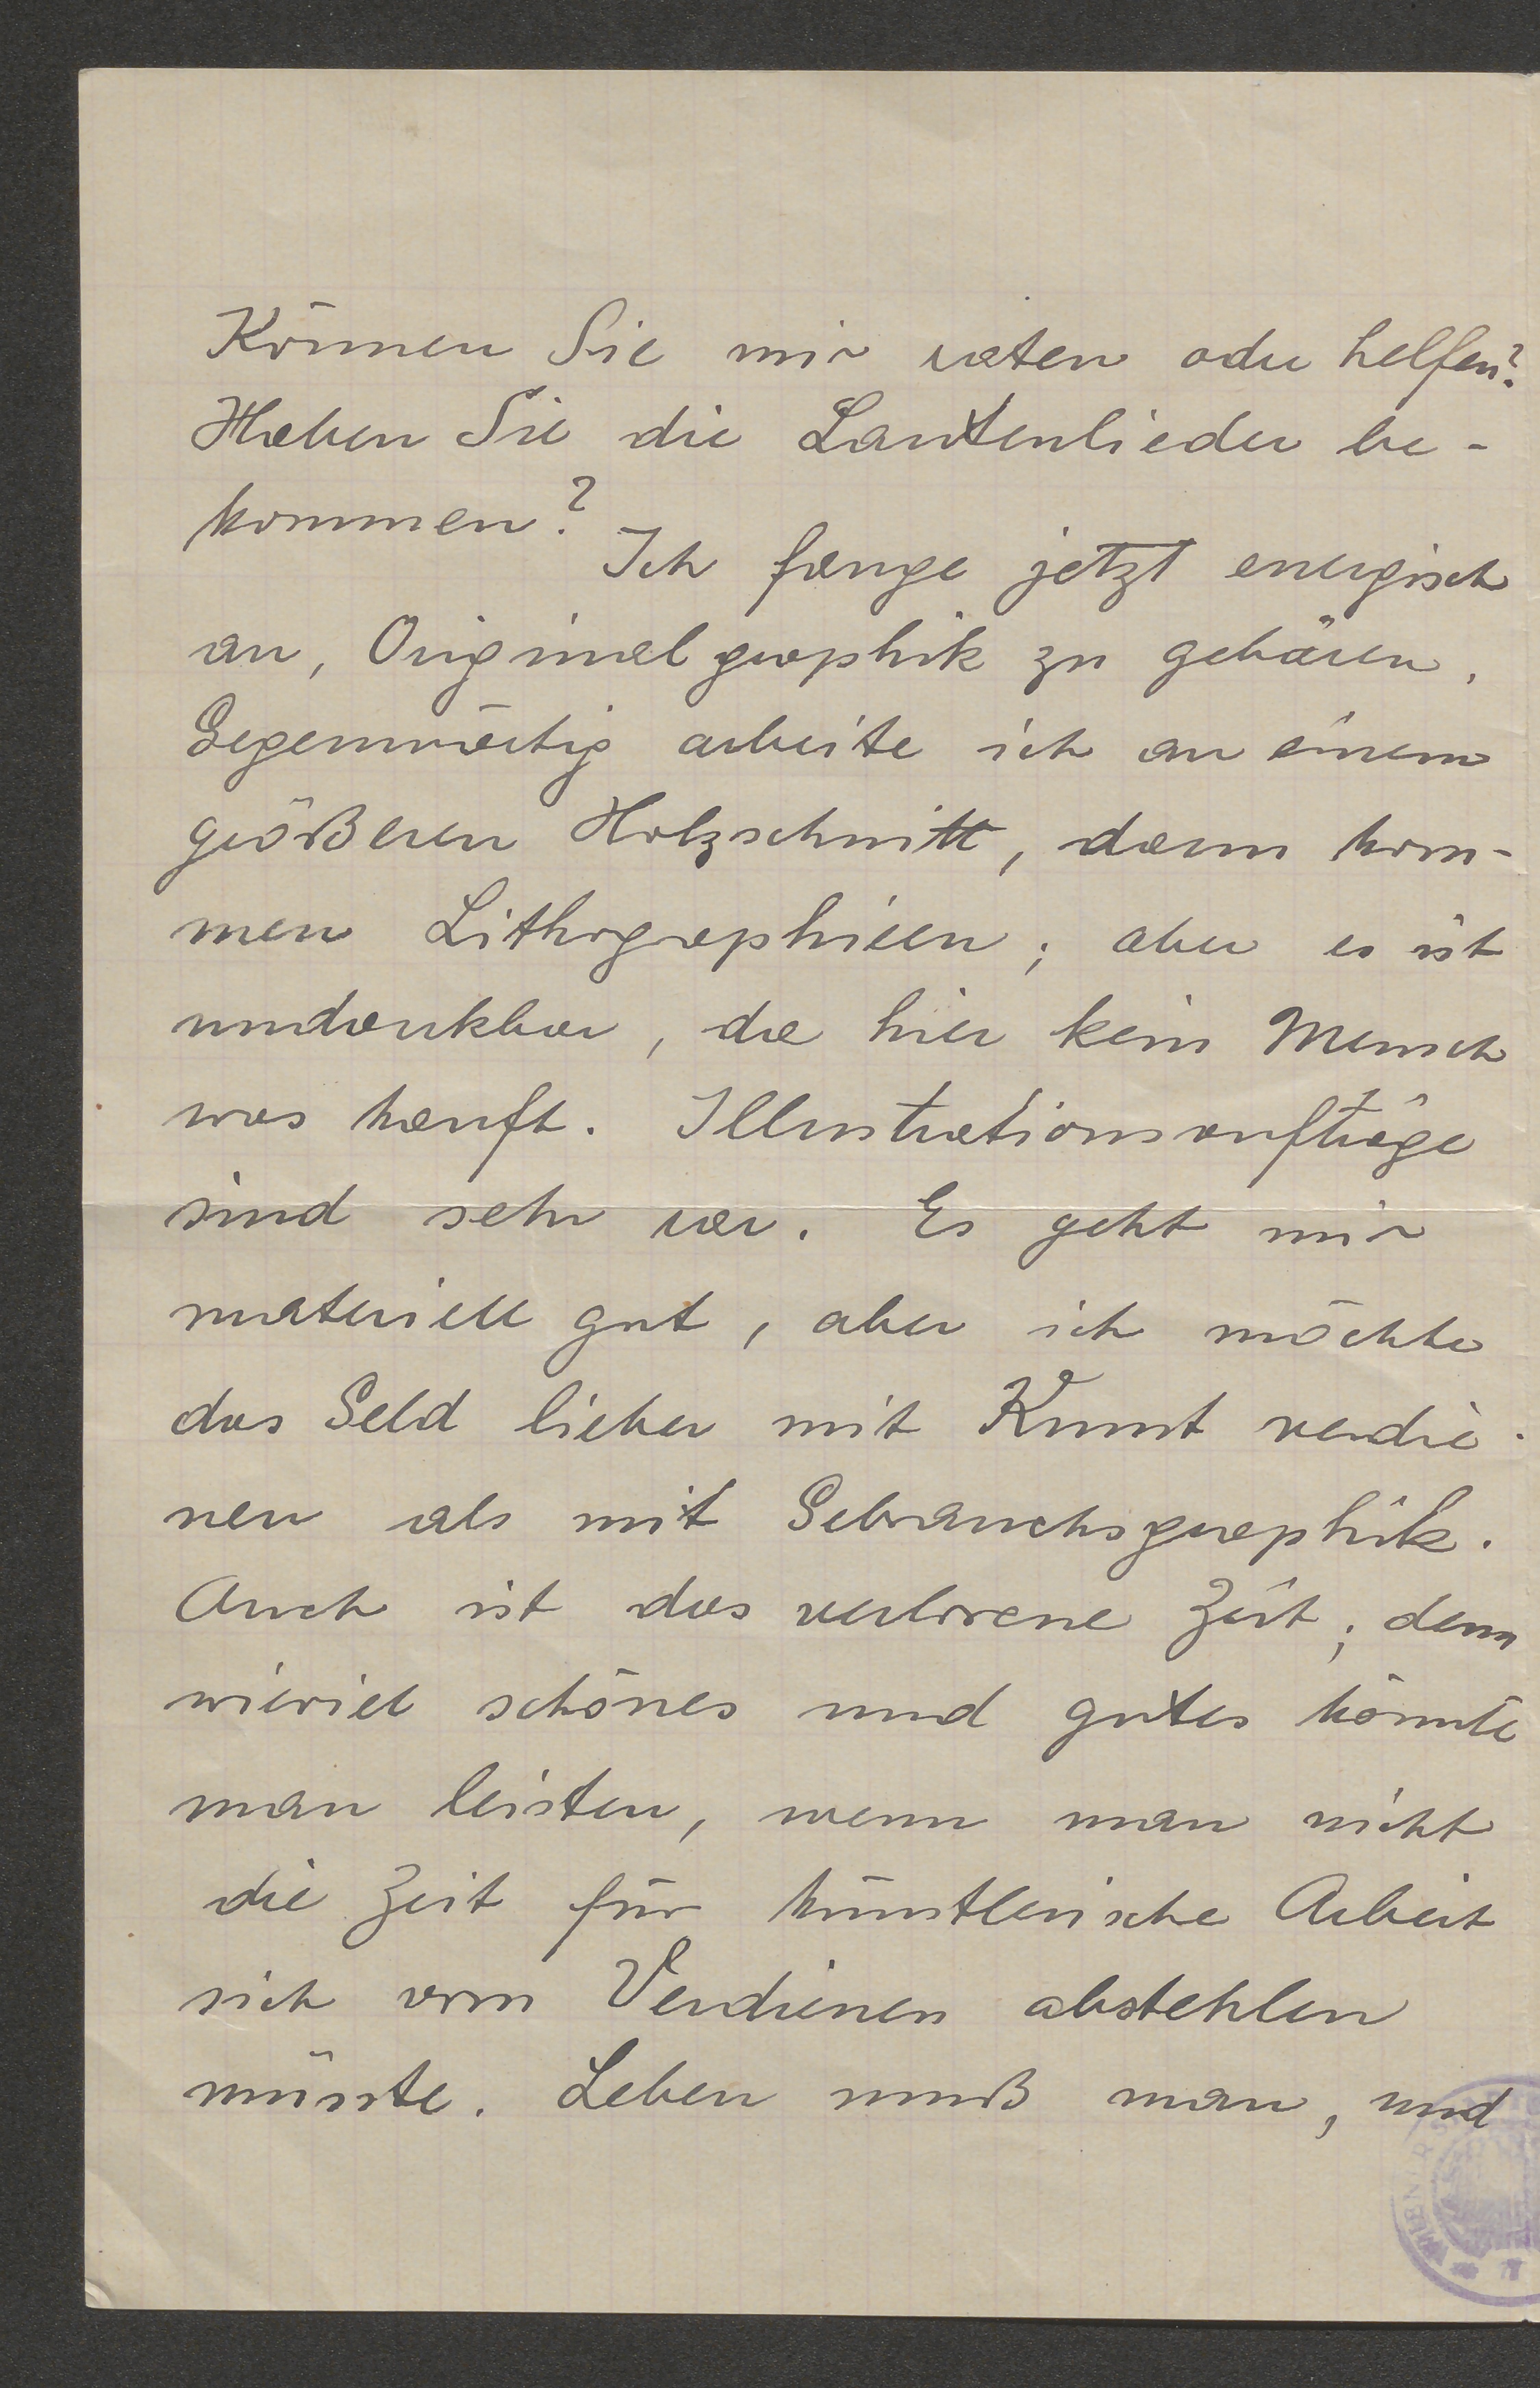 Können Sie mir raten oder helfen?
Haben Sie die Lautenlieder be-
kommen?
Ich fange jetzt energisch
an, Originalgraphik zu gebären.
Gegenwärtig arbeite ich an einem
größeren Holzschnitt, dann kom-
men Lithographieen; aber es ist
undankbar, da hier kein Mensch
was kauft. Illustrationsaufträge
sind sehr rar. Es geht mir
materiell gut, aber ich möchte
das Geld lieber mit Kunst verdie-
nen als mit Gebrauchsgraphik.
Auch ist das verlorene Zeit; denn
wieviel schönes und gutes könnte
man leisten, wenn man nicht
die Zeit für künstlerische Arbeit
sich vom Verdienen abstehlen
müsste. Leben muß man, und